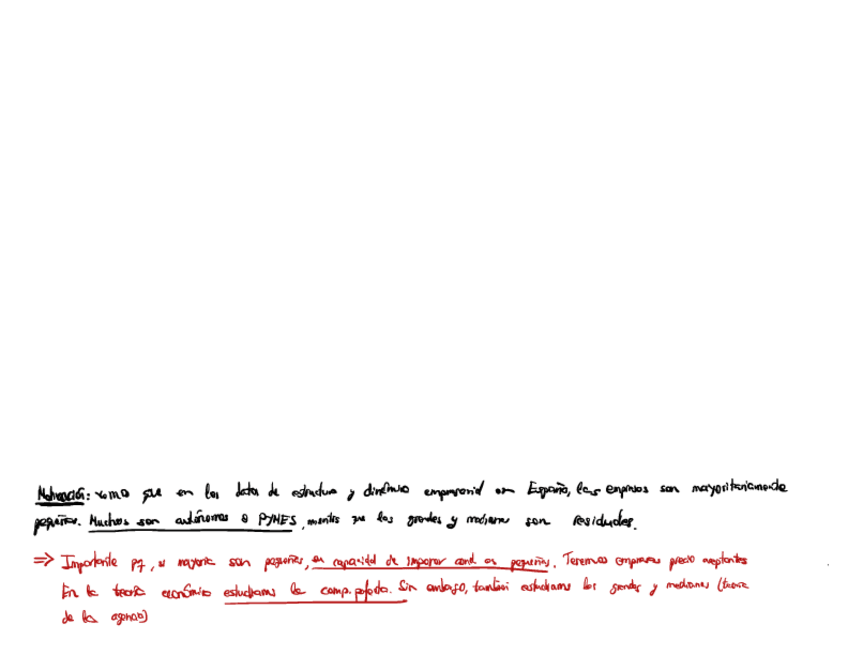 Motivación: vemos que en los datos de estructura y dinámica empresarial en España, las empresas son mayoritariamente
pequeñas. Muchos son autónomos o PYMES, mientras que las grandes y medianas son residuales.
=> Importante pq, si mayoría son pequeñas, su capacidad de imponer cond es pequeña. Tenemos empresas precio aceptantes
En la teoría económica estudiamos la comp. perfecta. Sin embargo, también estudiamos las grandes y medianas (teoría
de la)